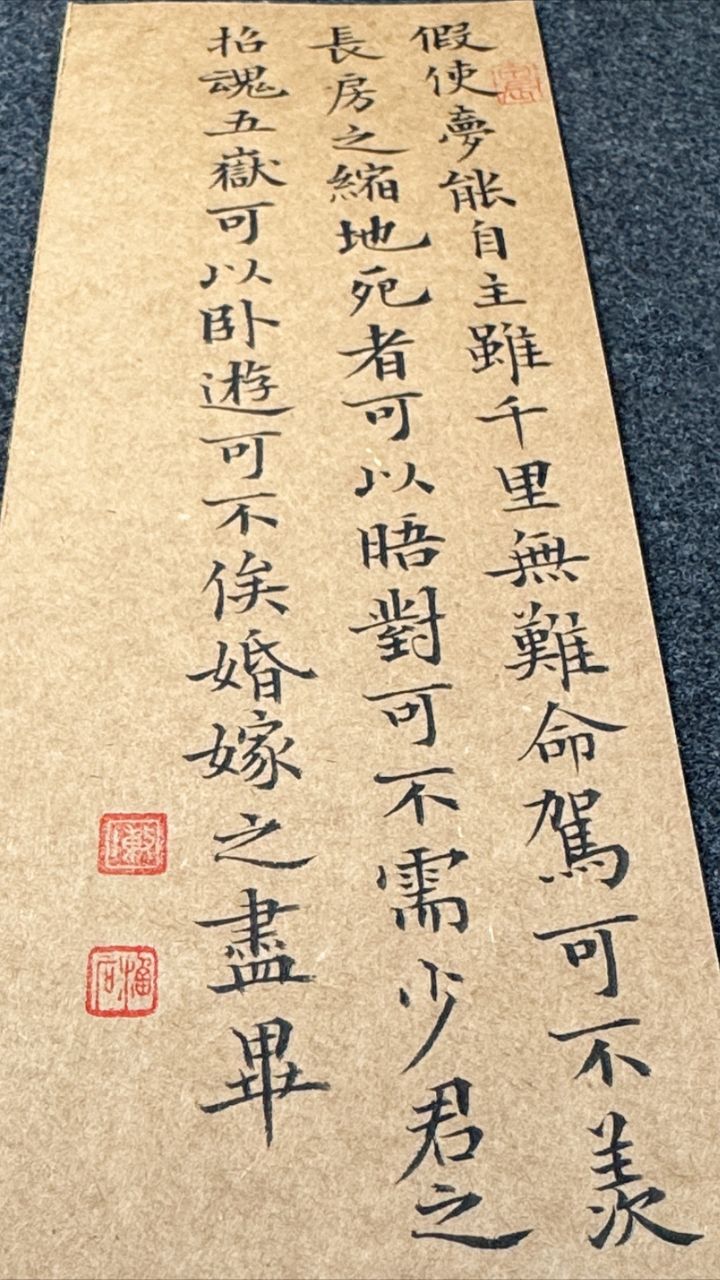 假使夢能自主雖千里無難命駕可不羨
長房之縮地死者可以晤對可不需少君之
招魂五嶽可以卧遊可不俟婚嫁之盡畢